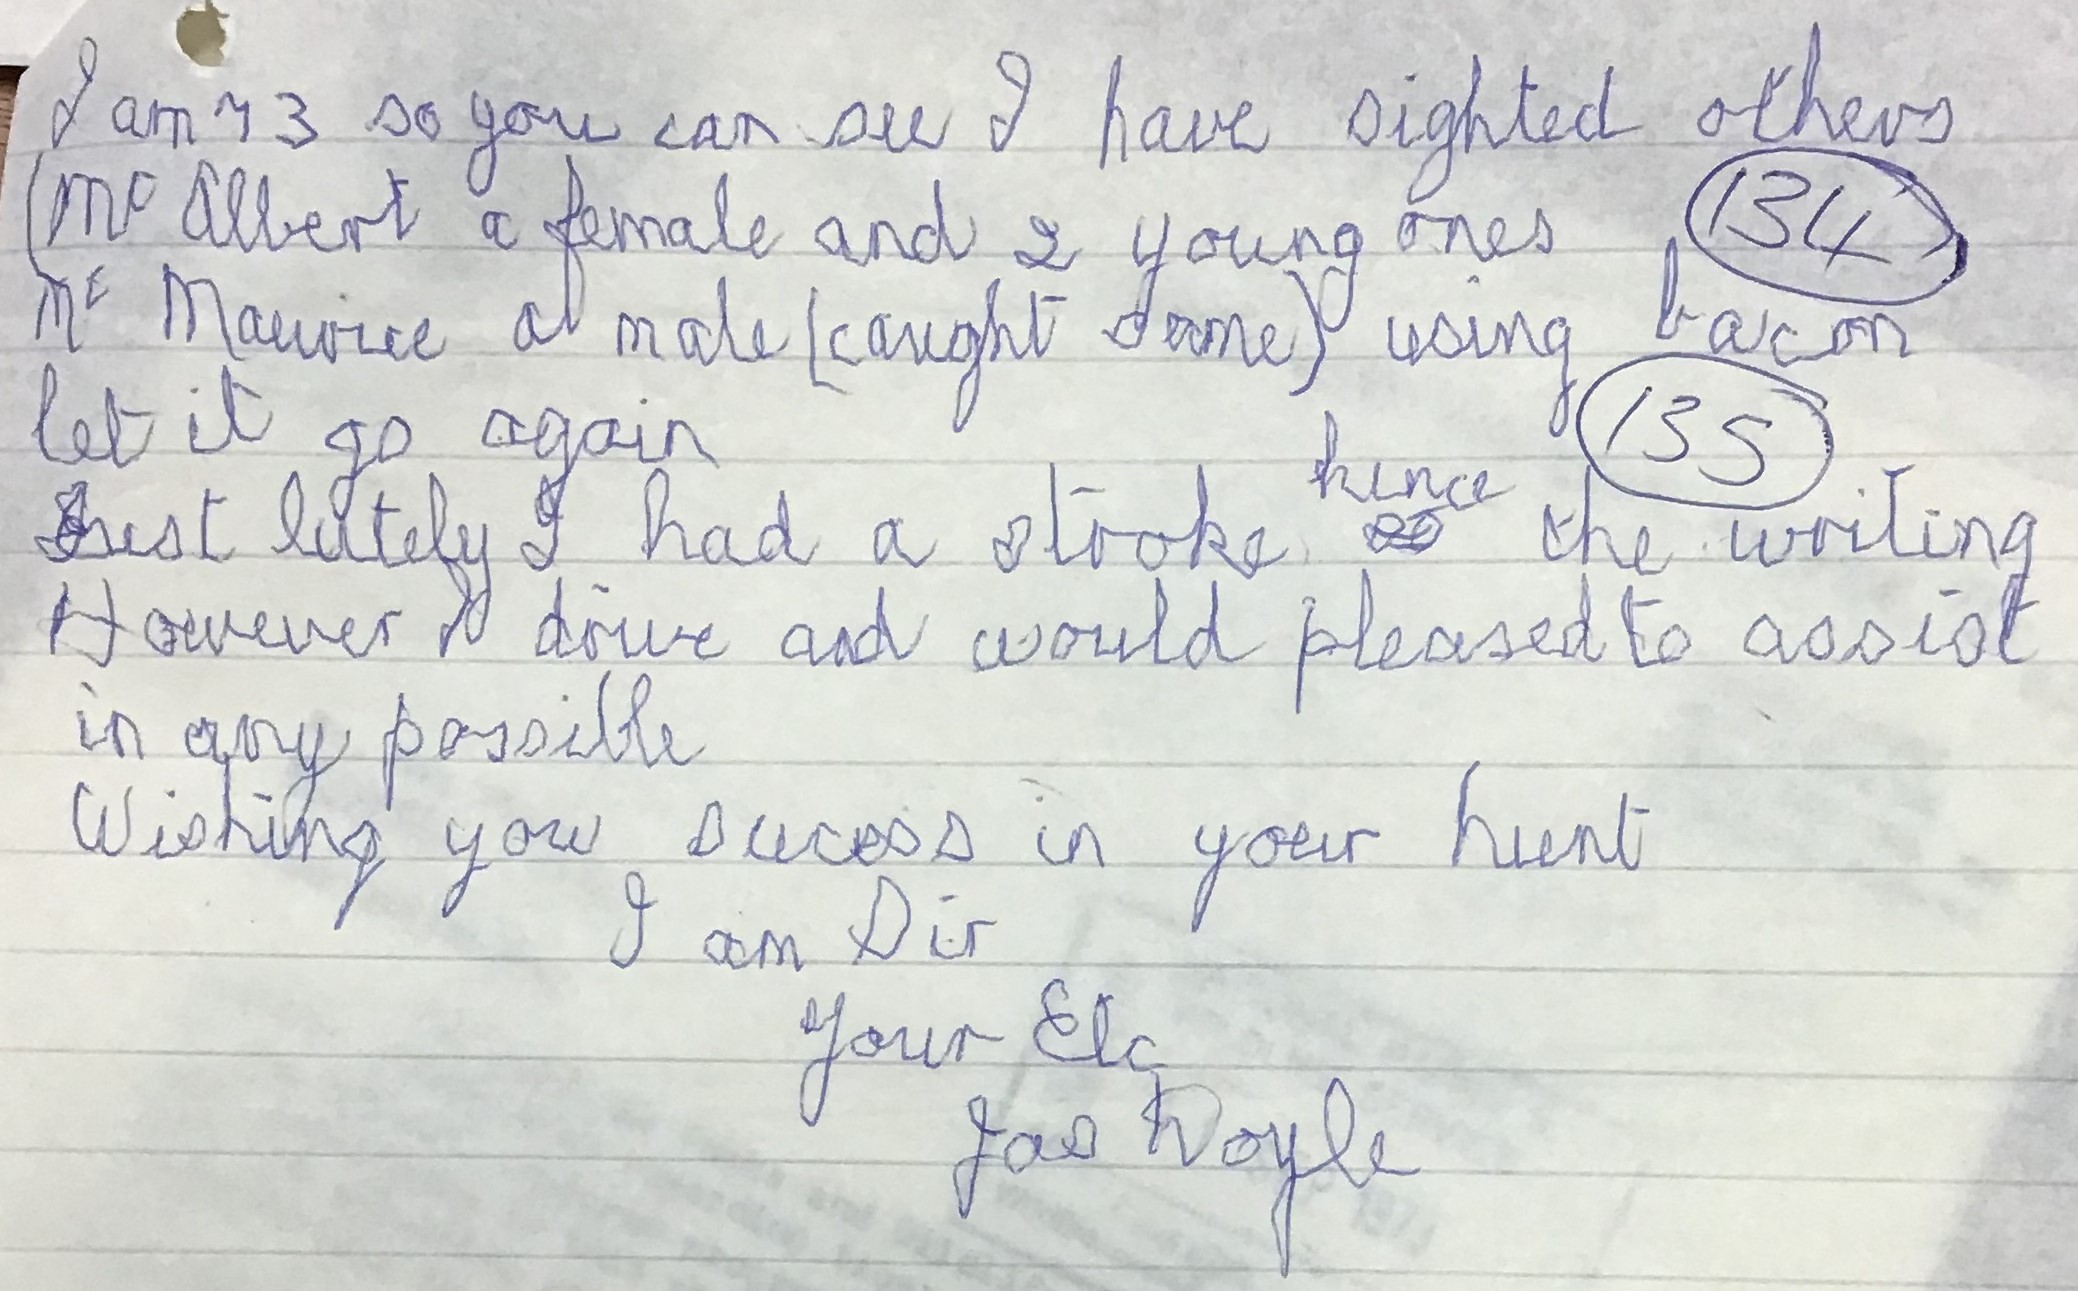 I am 73 so you can see I have sighted others
(Mt Albert a female and 2 young ones (134)
Mt Maurice a male (caught same) using bacon
let it go again (135)
Just lately I had a stroke hence the writing
However I drive and would pleased to assist
in any possible
Wishing you sucess in your hunt
I am Sir
Your Etc
Jas Doyle